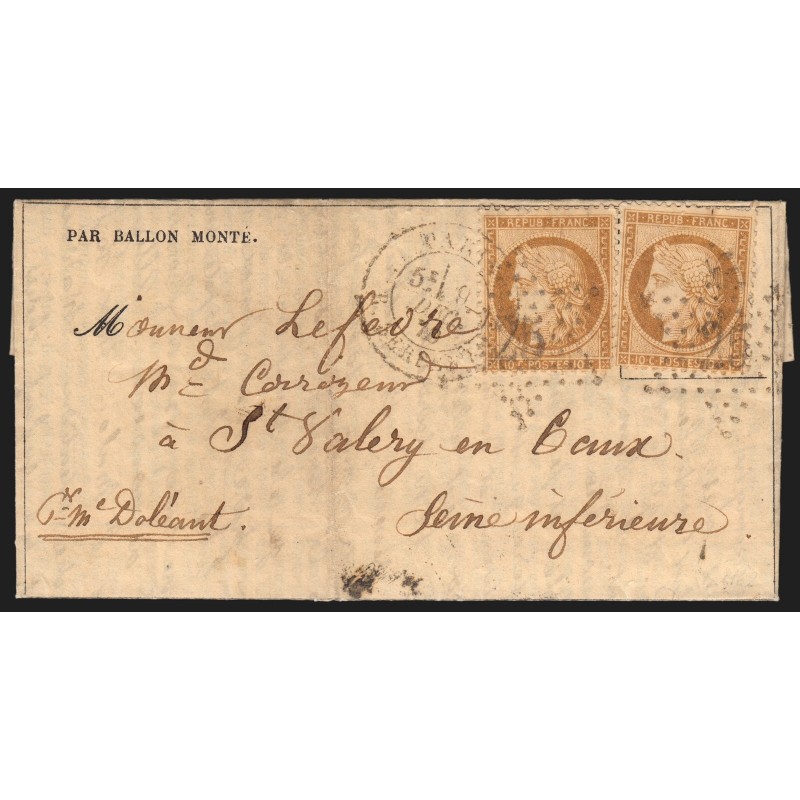 PAR BALLON MONTÉ.
REPUB · FRANC
REPUB · FRANC
10 C · POSTES · 10 C
10 C · POSTES · 10 C
PARIS
5E
DEC
25
Monsieur Lefèvre
Md Corroyeur
à St Valery en Caux.
Pr Me Doléant.
Seine inférieure.